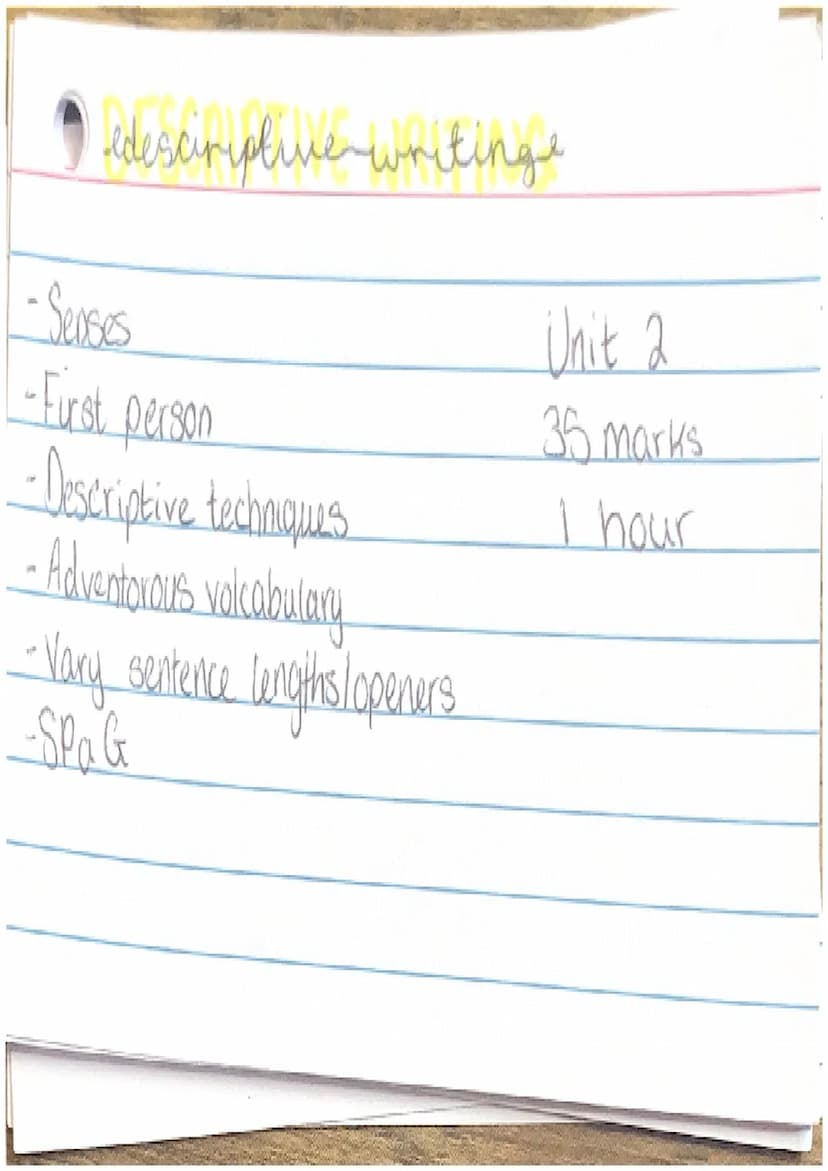 DESCRIPTIVE WRITING
descriptive writing
- Senses
Unit 2
- First person
35 marks
- Descriptive techniques
1 hour
- Adventorous volcabulary
- Vary sentence lengths/openers
- SPaG